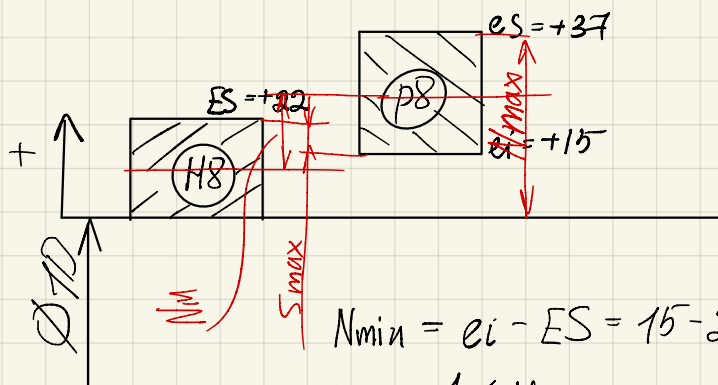 es = +37
ES = +22
p8
Nmax
ei = +15
+
H8
Ø10
Smax
Nmin = ei - ES = 15 - 2